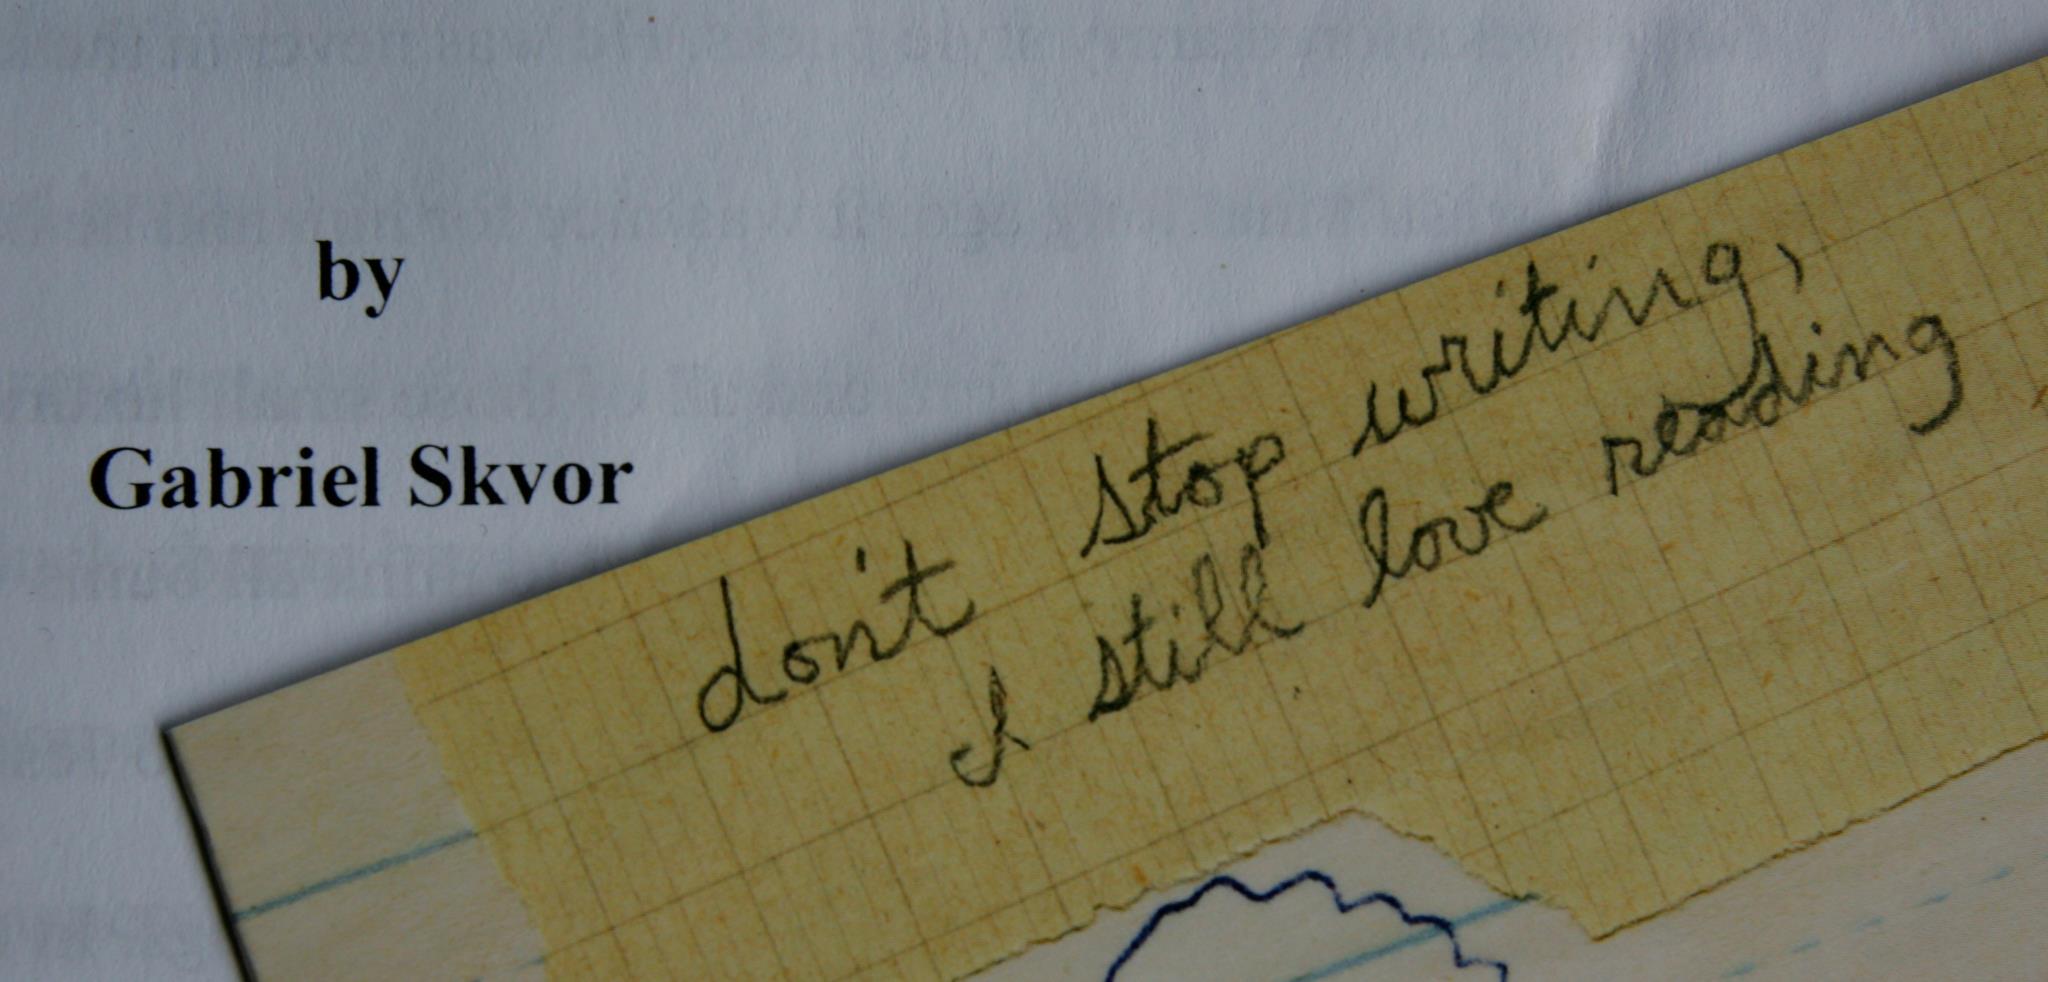 by
Gabriel Skvor
don't stop writing,
I still love reading